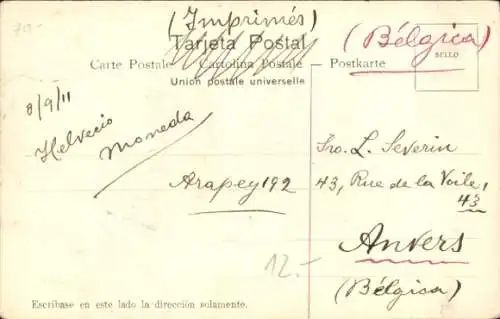 70.-
(Imprimés)
Tarjeta Postal
(Bélgica)
Carte Postale Cartolina Postale Postkarte
SELLO
Union postale universelle
8/9/11
Helvecio Moneda
Arapey 192
Sro. L. Severin
43, Rue de la Voile,
43
Anvers
(Bélgica)
12.-
Escríbase en este lado la dirección solamente.